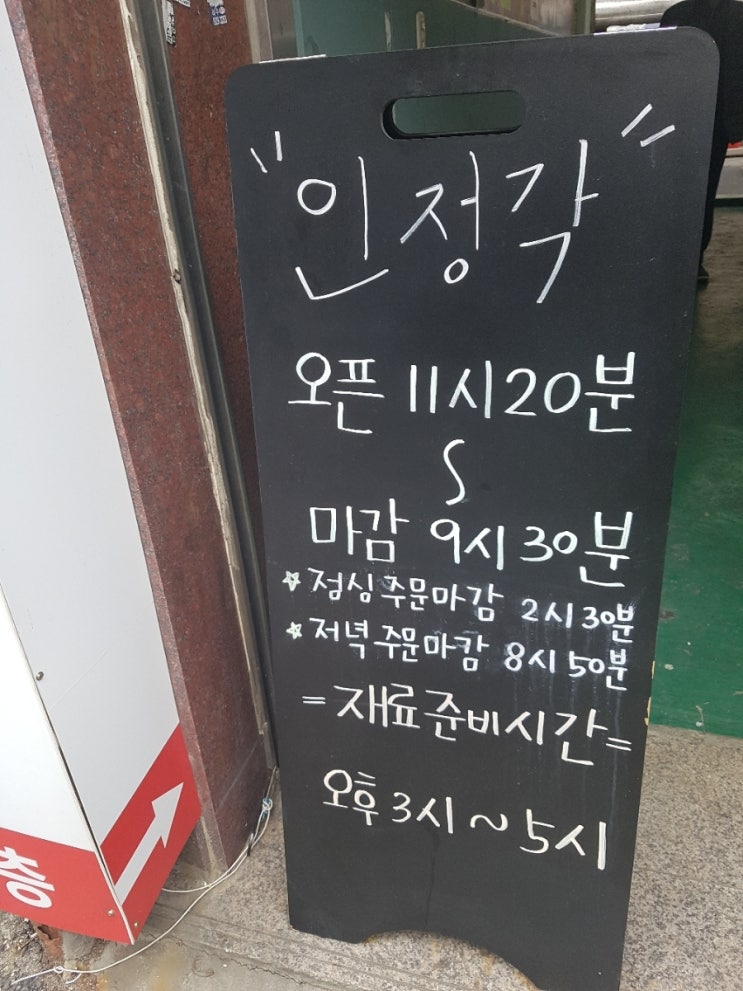 "인정각"
오픈 11시20분
~
마감 9시30분
☆ 점심주문마감 2시30분
☆ 저녁주문마감 8시50분
= 재료준비시간 =
오후 3시 ~ 5시
층